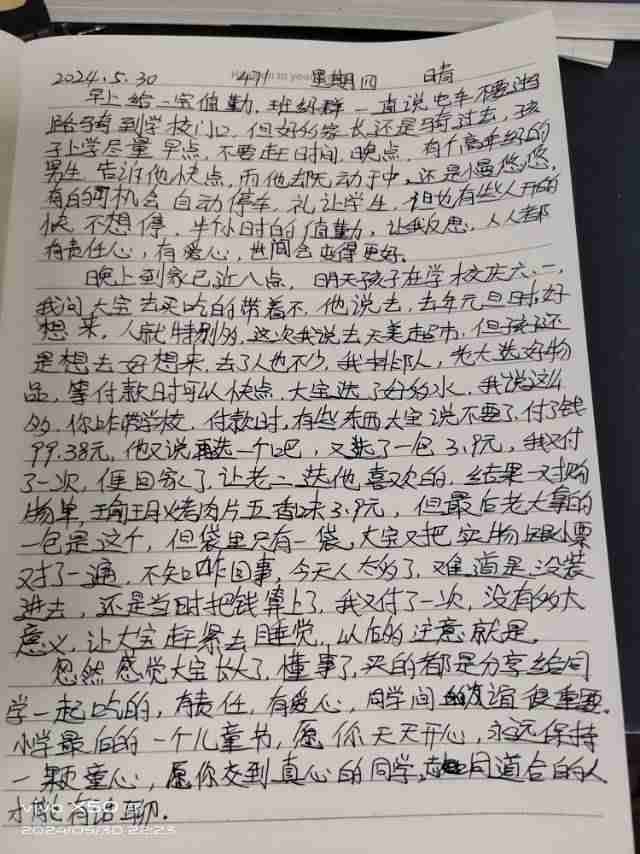 2024.5.30 471 星期四 晴
早上给二宝值勤,班级群一直说电车不要过马
路骑到学校门口,但好多家长还是骑过去,孩
子上学尽量早点,不要赶时间,晚点,有个高年级的
男生,告诉他快点,而他却无动于中,还是慢悠悠,
有的司机会自动停车,礼让学生,但也有些人开的
快不想停,半个小时的值勤,让我反思,人人都
有责任心,有爱心,世间会变得更好。
晚上到家已近八点,明天孩子在学校庆六、一,
我问大宝去买吃的带着不,他说去,去年元旦时好
想来,人就特别多,这次我说去天美超市,但孩子还
是想去好想来,去了人也不少,我排队,老大选好物
品,等付款时可以快点,大宝选了好多水,我说这么
多,你咋带学校,付款时,有些东西大宝说不要了,付了钱
99.38元,他又说再选一个吧,又选了一包3.9元,我又付
了一次,便回家了,让老二选他喜欢的,结果一对购
物单,猪肉烤肉片五香味3.9元,但最后老大拿的
一包是这个,但袋里只有一袋,大宝又把实物跟小票
对了一遍,不知咋回事,今天人太多了,难道是没装
进去,还是当时把钱算上了,我又付了一次,没有多大
意义,让大宝赶紧去睡觉,以后多注意就是。
忽然感觉大宝长大了,懂事了,买的都是分享给同
学一起吃的,有责任,有爱心,同学间的友谊很重要。
小学最后的一个儿童节,愿你天天开心,永远保持
一颗童心,愿你交到真心的同学,志同道合的人
才能有话聊.
vivo X50
2024/05/30 22:23